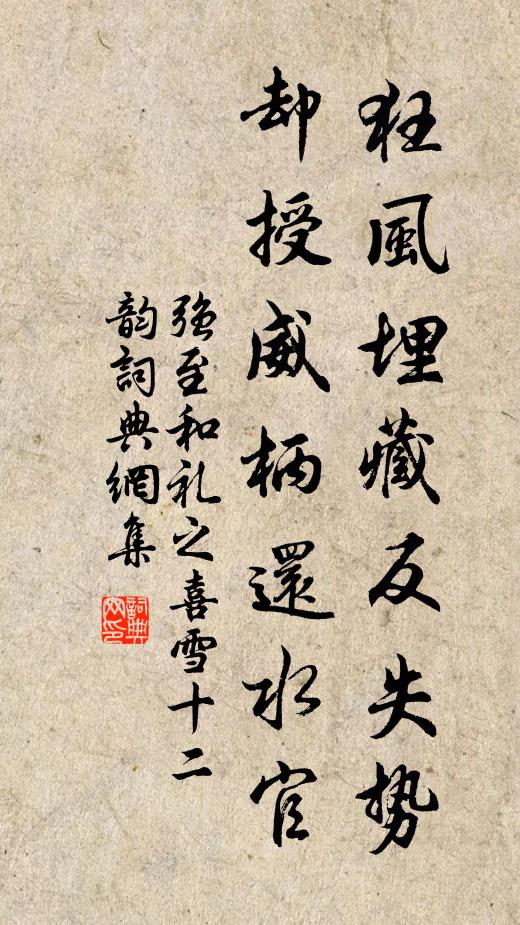 狂風埋藏反失勢
却授威柄還水官
強至和礼之喜雪十二
韵詞典網集
詞典網印